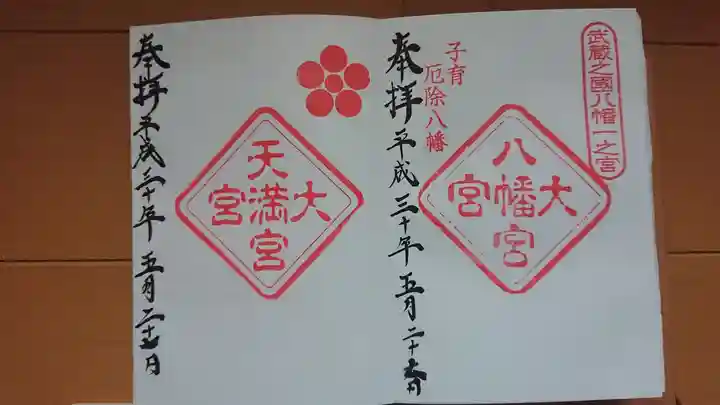 武蔵之國八幡一之宮
子育
厄除八幡
大宮
八幡宮
奉拝 平成三十年 五月二十日
大宮
天満宮
奉拝 平成三十年 五月二十日